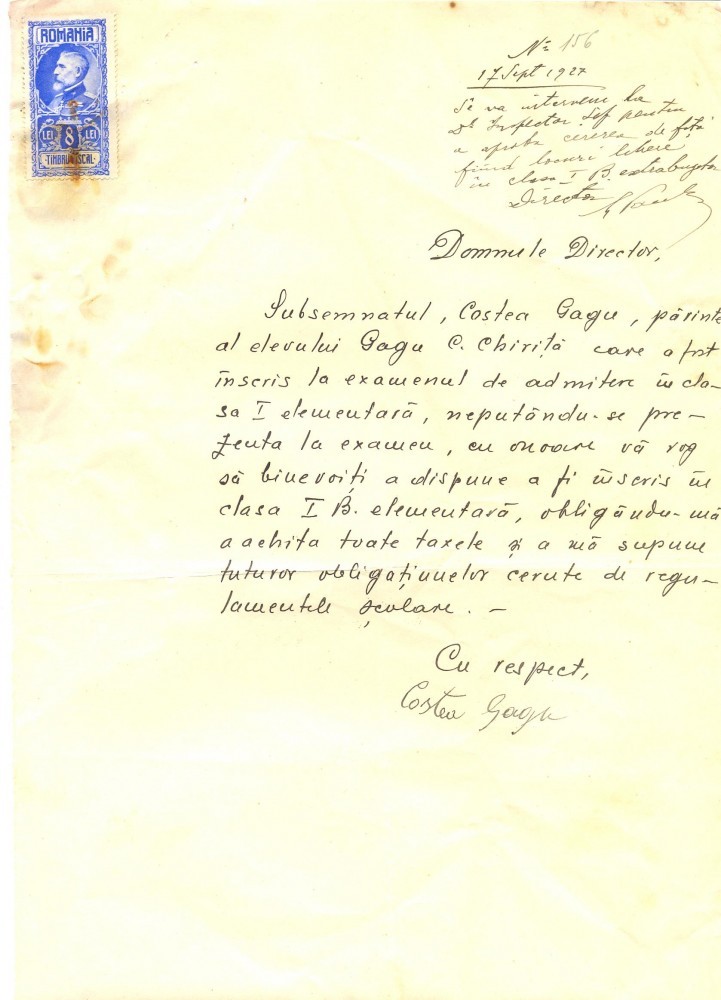 ROMANIA
LEI 8 LEI
TIMBRU FISCAL
No 156
17 Sept 1927
Se va interveni la
Dl. Inspector Șef pentru
a aproba cererea de față
fiind locuri libere
în clasa I B. extrabugetară
Director
Domnule Director,
Subsemnatul, Costea Gagu, părinte
al elevului Gagu C. Chiriță care a fost
înscris la examenul de admitere în cla-
sa I elementară, neputându-se pre-
zenta la examen, cu onoare vă rog
să binevoiți a dispune a fi înscris în
clasa I B. elementară, obligându-mă
a achita toate taxele și a mă supune
tuturor obligațiunelor cerute de regu-
lamentele școlare. —
Cu respect,
Costea Gagu